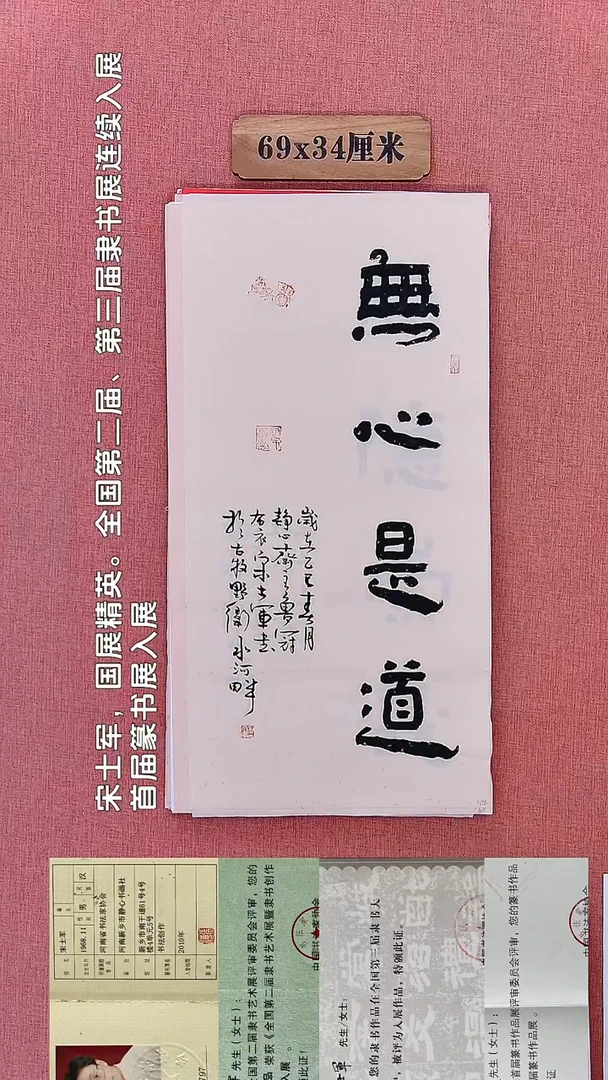 69x34厘米
宋士军，国展精英。全国第二届、第三届隶书展连续入展
首届篆书展入展
無
心
道
歲在乙巳
静心齋主
宋士軍書
於古牧野衛水河畔
姓名 宋士军
1968.11 性别 男 汉
河南省书法家协会
河南新乡市静心书画社
新乡市南干道61号4号
楼4单元5号
书法创作
2010年
先生(女士)：
国第二届隶书艺术展评审委员会评审，您的
品 荣获《全国第二届隶书艺术展暨隶书创作
入展 。
此证！
先生/女士：
您的隶书作品在全国第三届隶书大
，被评为入展作品，特颁此证。
先生(女士)：
首届篆书作品展评审委员会评审，您的篆书作品
首届篆书作品展 。
证